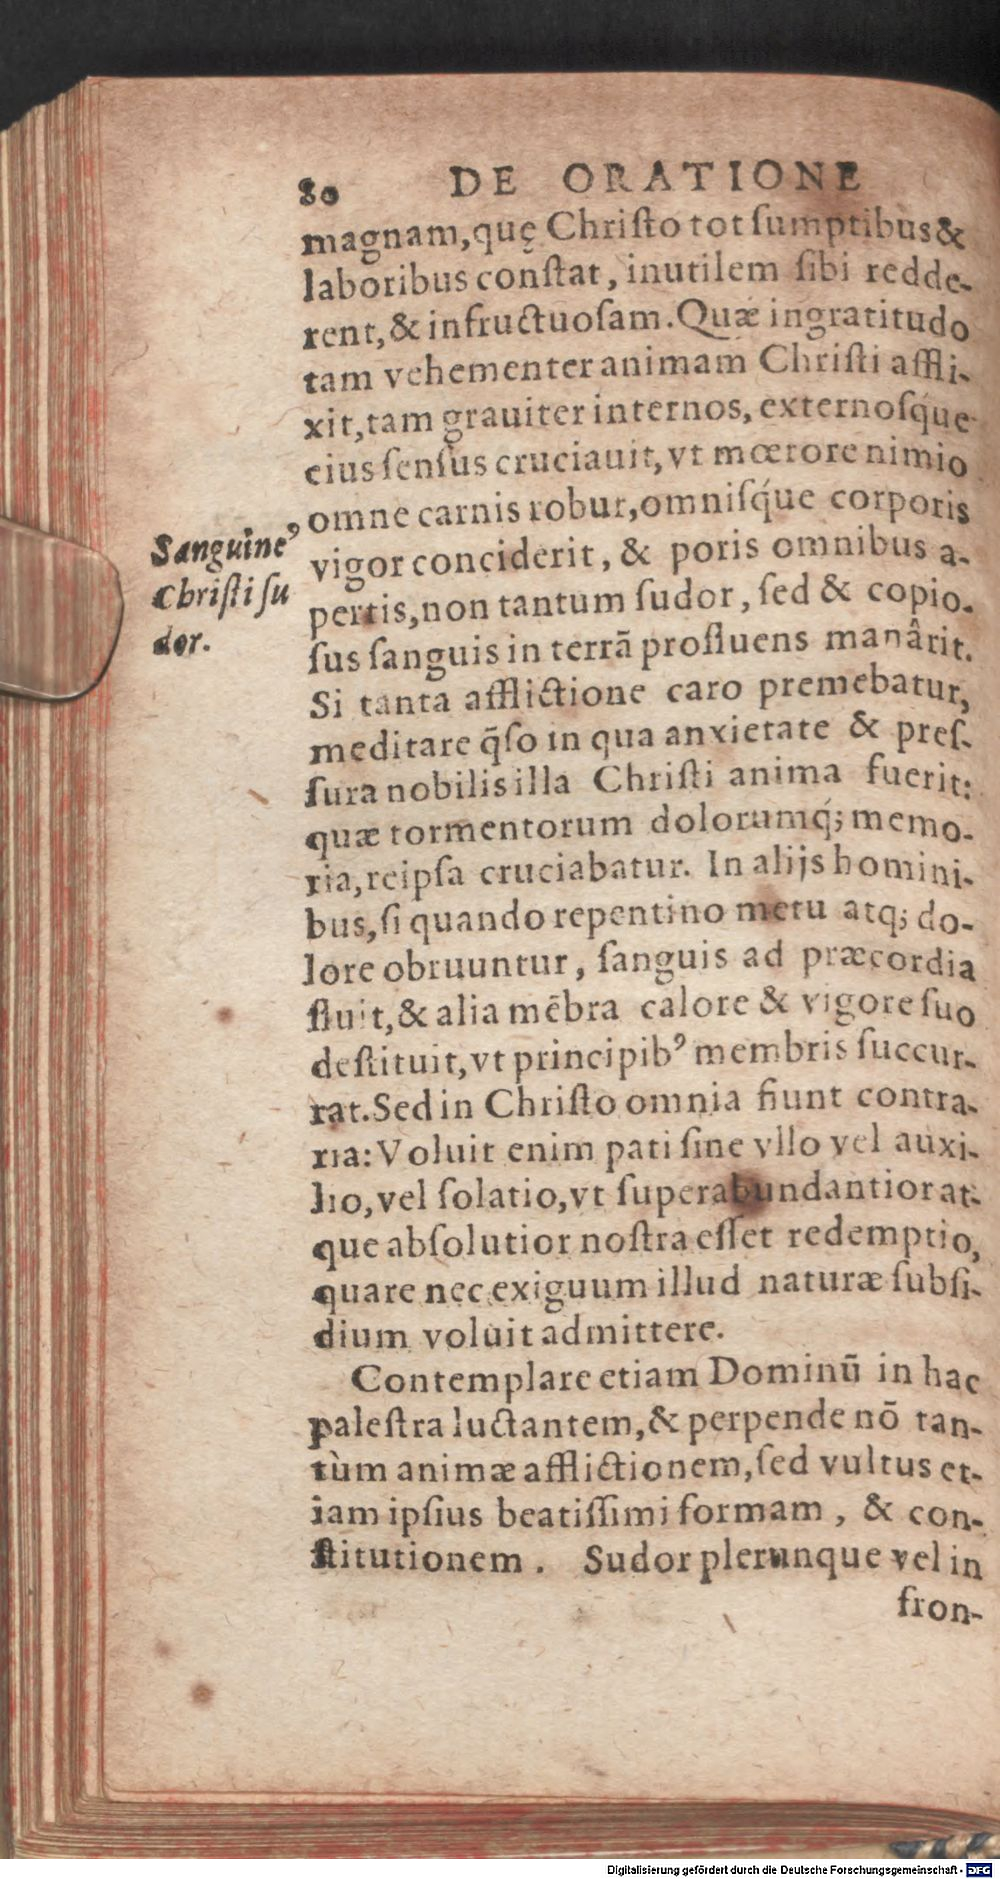 80 DE ORATIONE
magnam, quę Christo tot sumptibus &
laboribus constat, inutilem sibi redde-
rent, & infructuosam. Quæ ingratitudo
tam vehementer animam Christi affli-
xit, tam grauiter internos, externosq́ue
eius sensus cruciauit, vt mœrore nimio
omne carnis robur, omnisq́ue corporis
vigor conciderit, & poris omnibus a-
pertis, non tantum sudor, sed & copio-
sus sanguis in terrā profluens manârit.
Si tanta afflictione caro premebatur,
meditare q̄so in qua anxietate & pres-
sura nobilis illa Christi anima fuerit:
quæ tormentorum dolorumq́; memo-
ria, reipsa cruciabatur. In alijs homini-
bus, si quando repentino metu atq; do-
lore obruuntur, sanguis ad præcordia
fluit, & alia mēbra calore & vigore suo
destituit, vt principibꝰ membris succur-
rat. Sed in Christo omnia fiunt contra-
ria: Voluit enim pati sine vllo vel auxi-
lio, vel solatio, vt superabundantior at-
que absolutior nostra esset redemptio,
quare nec exiguum illud naturæ subsi-
dium voluit admittere.
Contemplare etiam Dominū in hac
palestra luctantem, & perpende nō tan-
tùm animæ afflictionem, sed vultus et-
iam ipsius beatissimi formam, & con-
stitutionem. Sudor plerunque vel in
fron-
Sanguineꝰ
Christi su
dor.
Digitalisierung gefördert durch die Deutsche Forschungsgemeinschaft - DFG